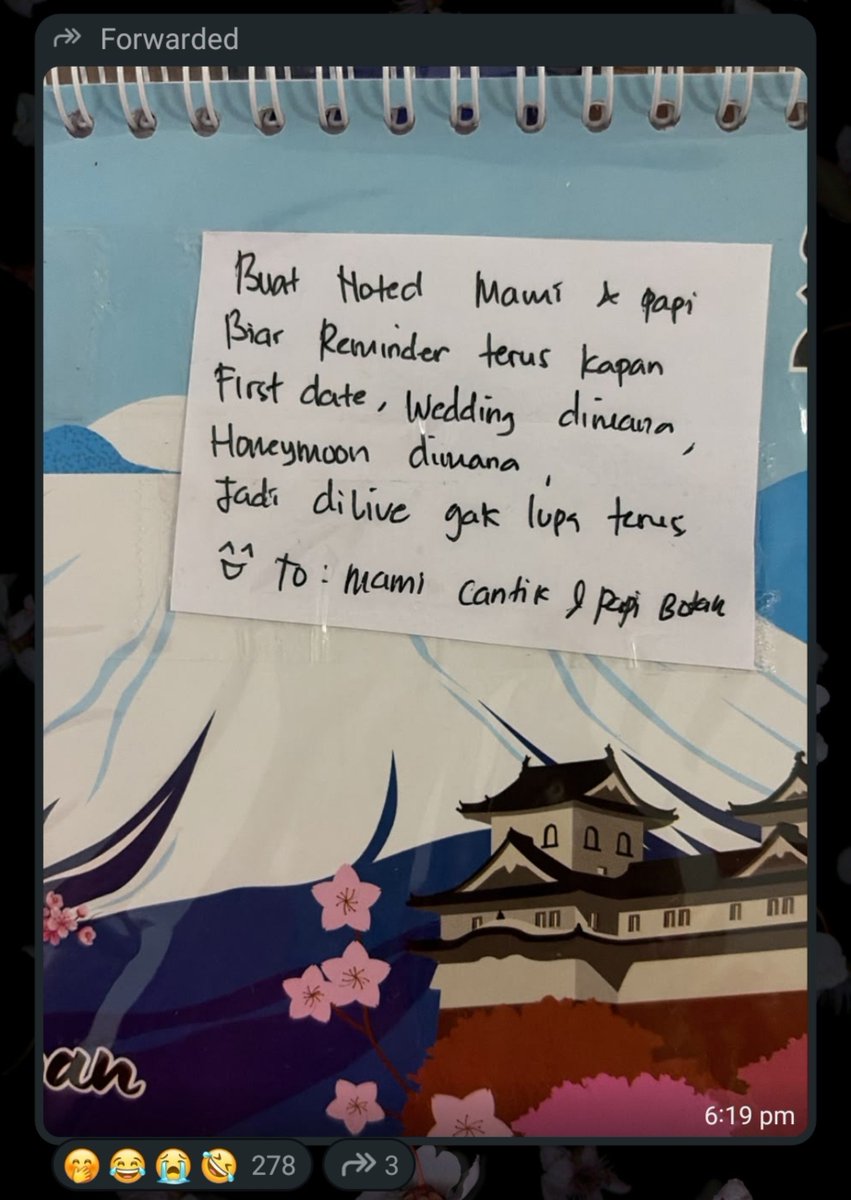 Forwarded
Buat Noted Mami & papi
Biar Reminder terus kapan
First date, Wedding dimana,
Honeymoon dimana,
Jadi dilive gak lupa terus
To: Mami Cantik & Papi Botak
an
6:19 pm
278
3